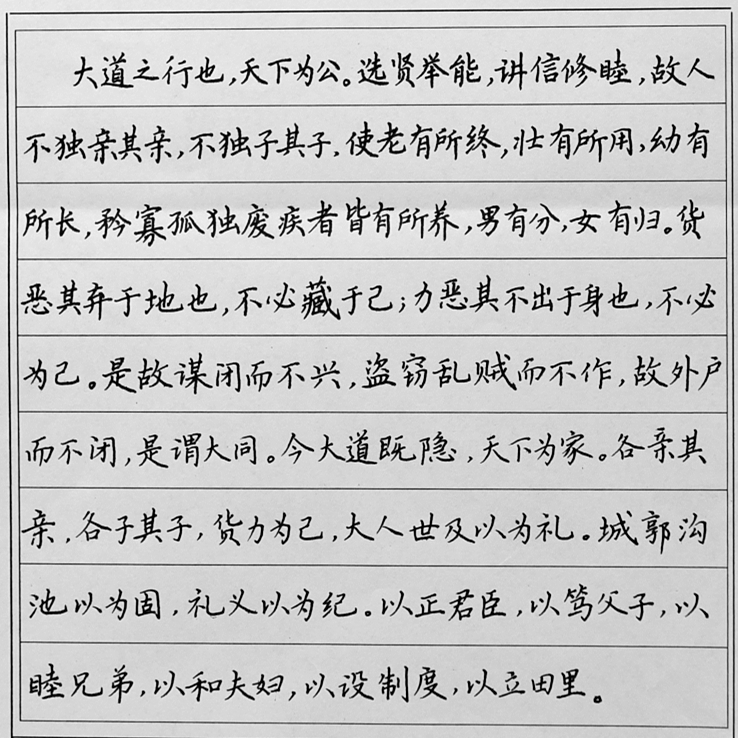 大道之行也,天下为公。选贤举能,讲信修睦,故人
不独亲其亲,不独子其子,使老有所终,壮有所用,幼有
所长,矜寡孤独废疾者皆有所养,男有分,女有归。货
恶其弃于地也,不必藏于己;力恶其不出于身也,不必
为己。是故谋闭而不兴,盗窃乱贼而不作,故外户
而不闭,是谓大同。今大道既隐,天下为家。各亲其
亲,各子其子,货力为己,大人世及以为礼。城郭沟
池以为固,礼义以为纪。以正君臣,以笃父子,以
睦兄弟,以和夫妇,以设制度,以立田里。